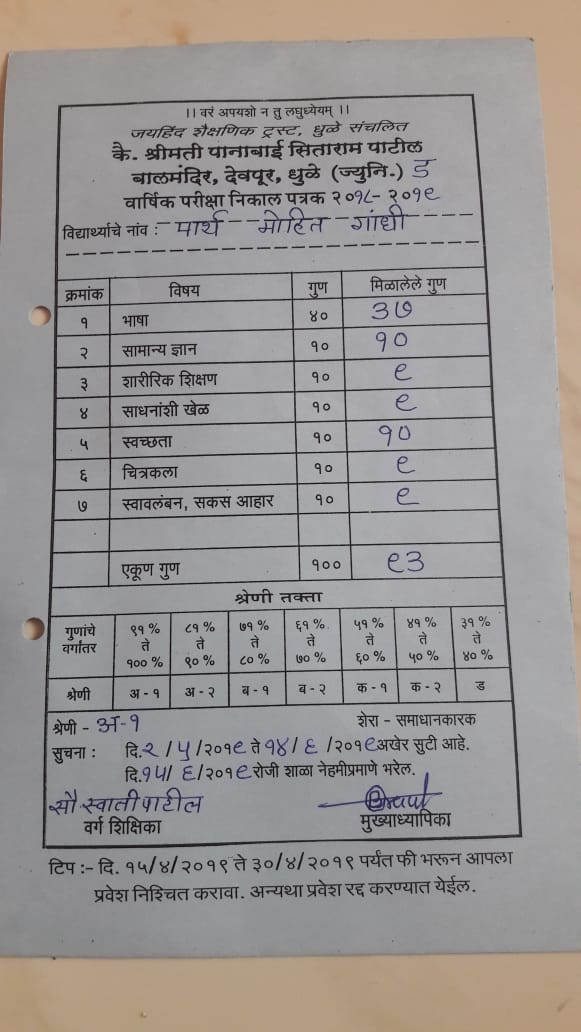 ।। वरं अपयशो न तु लघुध्येयम् ।।
जयहिंद शैक्षणिक ट्रस्ट, धुळे संचलित
कै. श्रीमती पानाबाई सिताराम पाटील
बालमंदिर, देवपूर, धुळे (ज्युनि.) ड
वार्षिक परीक्षा निकाल पत्रक २०१८- २०१९
विद्यार्थ्याचे नांव : पार्थ मोहित गांधी
क्रमांक विषय गुण मिळालेले गुण
१ भाषा ४० ३७
२ सामान्य ज्ञान १० १०
३ शारीरिक शिक्षण १० ९
४ साधनांशी खेळ १० ९
५ स्वच्छता १० १०
६ चित्रकला १० ९
७ स्वावलंबन, सकस आहार १० ९
एकूण गुण १०० ९३
श्रेणी तक्ता
गुणांचे वर्गांतर ९१ % ते १०० % ८१ % ते ९० % ७१ % ते ८० % ६१ % ते ७० % ५१ % ते ६० % ४१ % ते ५० % ३१ % ते ४० %
श्रेणी अ - १ अ - २ ब - १ ब - २ क - १ क - २ ड
श्रेणी - अ-१ शेरा - समाधानकारक
सुचना : दि. २ / ५ /२०१९ ते १४ / ६ /२०१९ अखेर सुटी आहे.
दि. १५/ ६ /२०१९ रोजी शाळा नेहमीप्रमाणे भरेल.
सौ स्वाती पाटील
वर्ग शिक्षिका मुख्याध्यापिका
टिप :- दि. १५/४/२०१९ ते ३०/४/२०१९ पर्यंत फी भरून आपला
प्रवेश निश्चित करावा. अन्यथा प्रवेश रद्द करण्यात येईल.